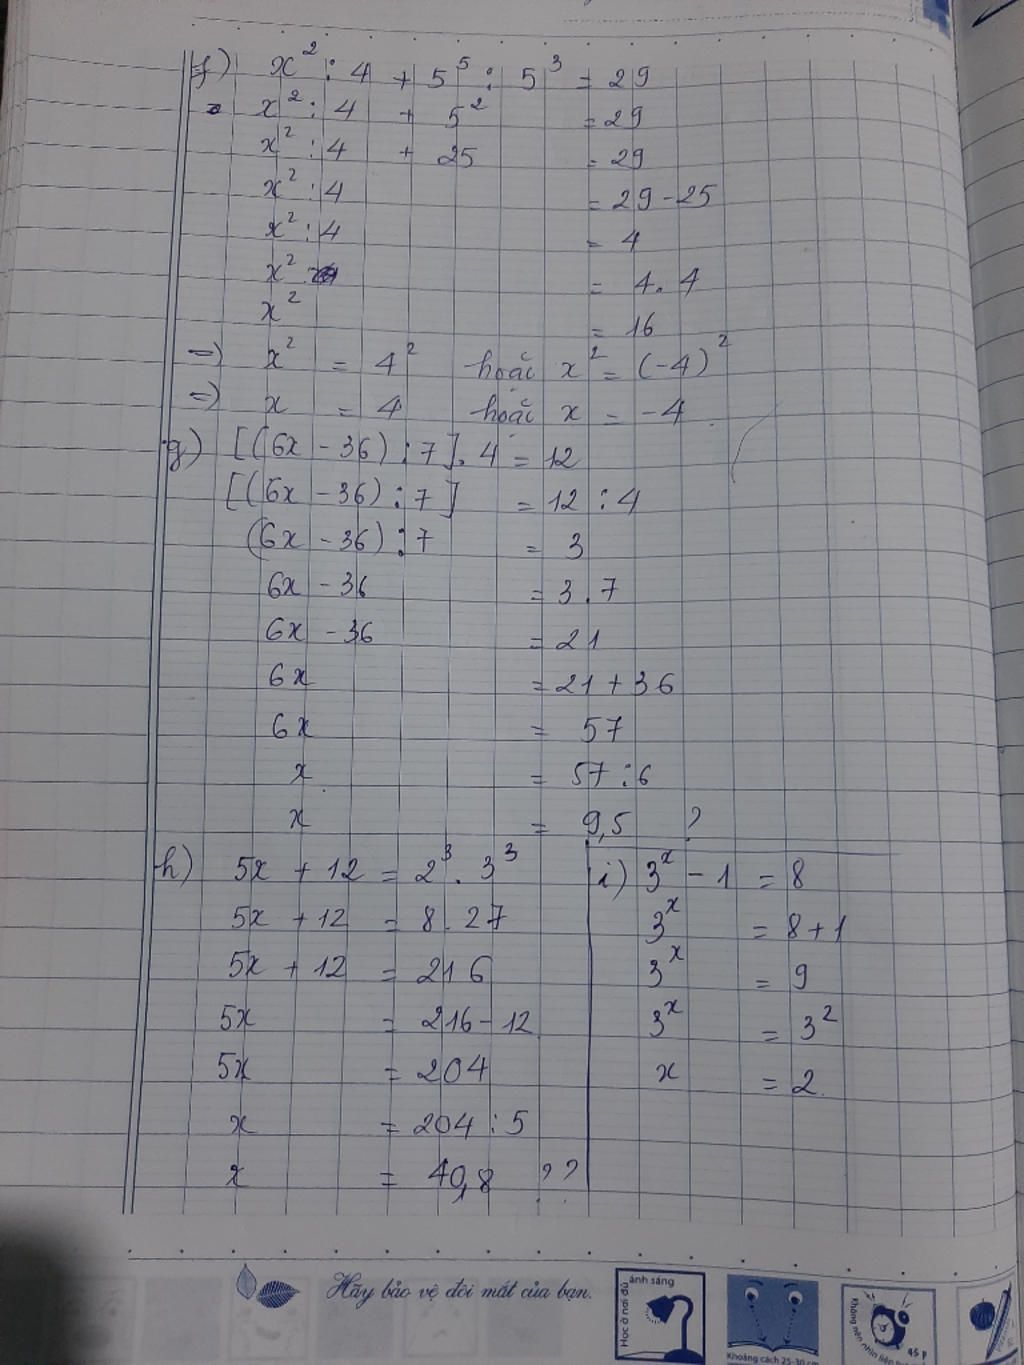 f) x² : 4 + 5⁵ : 5³ = 29
x² : 4 + 5² = 29
x² : 4 + 25 = 29
x² : 4 = 29 - 25
x² : 4 = 4
x² = 4 . 4
x² = 16
=) x² = 4² hoặc x² = (-4)²
=) x = 4 hoặc x = -4
g) [(6x - 36) : 7] . 4 = 12
[(6x - 36) : 7] = 12 : 4
(6x - 36) : 7 = 3
6x - 36 = 3 . 7
6x - 36 = 21
6x = 21 + 36
6x = 57
x = 57 : 6
x = 9,5 ?
h) 5x + 12 = 2³ . 3³
5x + 12 = 8 . 27
5x + 12 = 216
5x = 216 - 12
5x = 204
x = 204 : 5
x = 40,8 ??
i) 3ˣ - 1 = 8
3ˣ = 8 + 1
3ˣ = 9
3ˣ = 3²
x = 2
Hãy bảo vệ đôi mắt của bạn.
Học ở nơi đủ ánh sáng
Khoảng cách 25-30 cm
Không nên nhìn liên
45 P